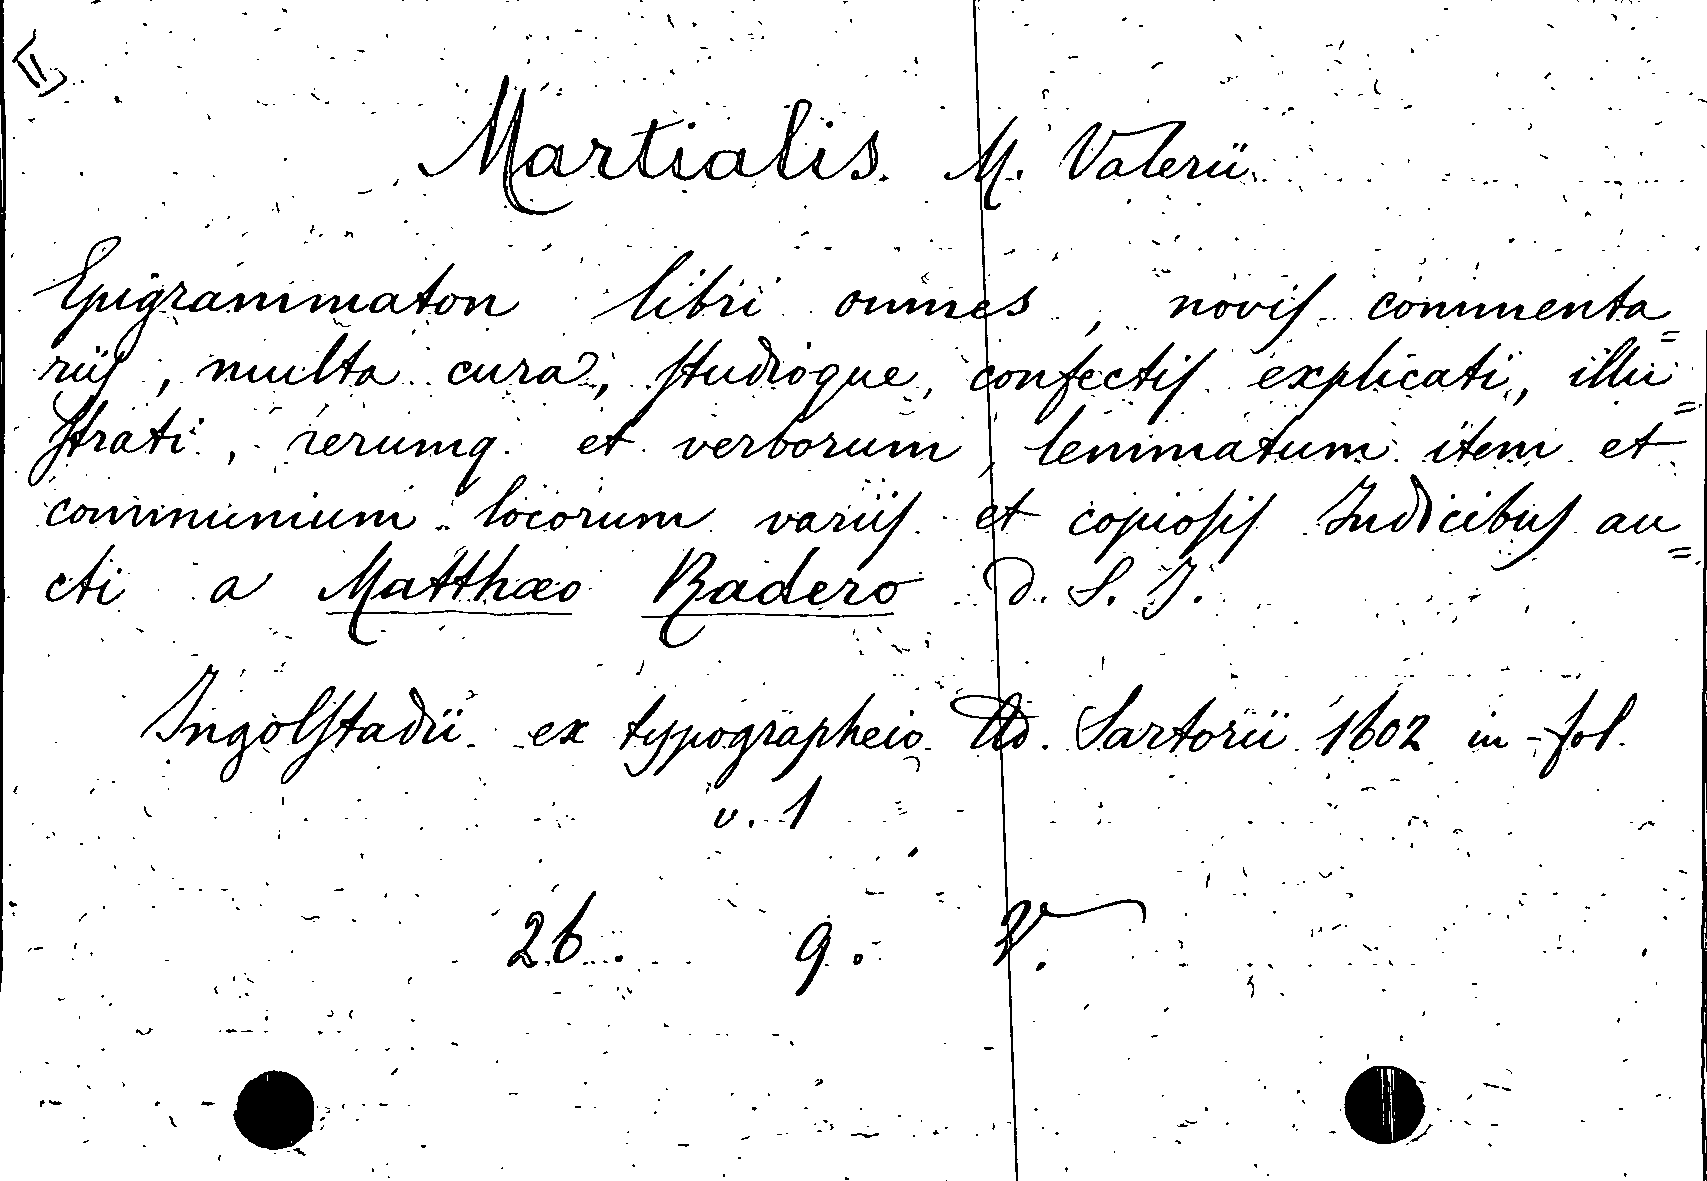 II
Martialis. M. Valerii
Epigrammaton libri omnes, novis commenta=
riis, multa cura, studioque, confectis explicati, illu=
strati, rerumq. et verborum, lemmatum item et
communium locorum variis et copiosis Indicibus au=
cti a Matthæo Radero D. S. J.
Ingolstadii ex typographeio Ad. Sartorii 1602 in-fol.
v. 1
26. 9. V.